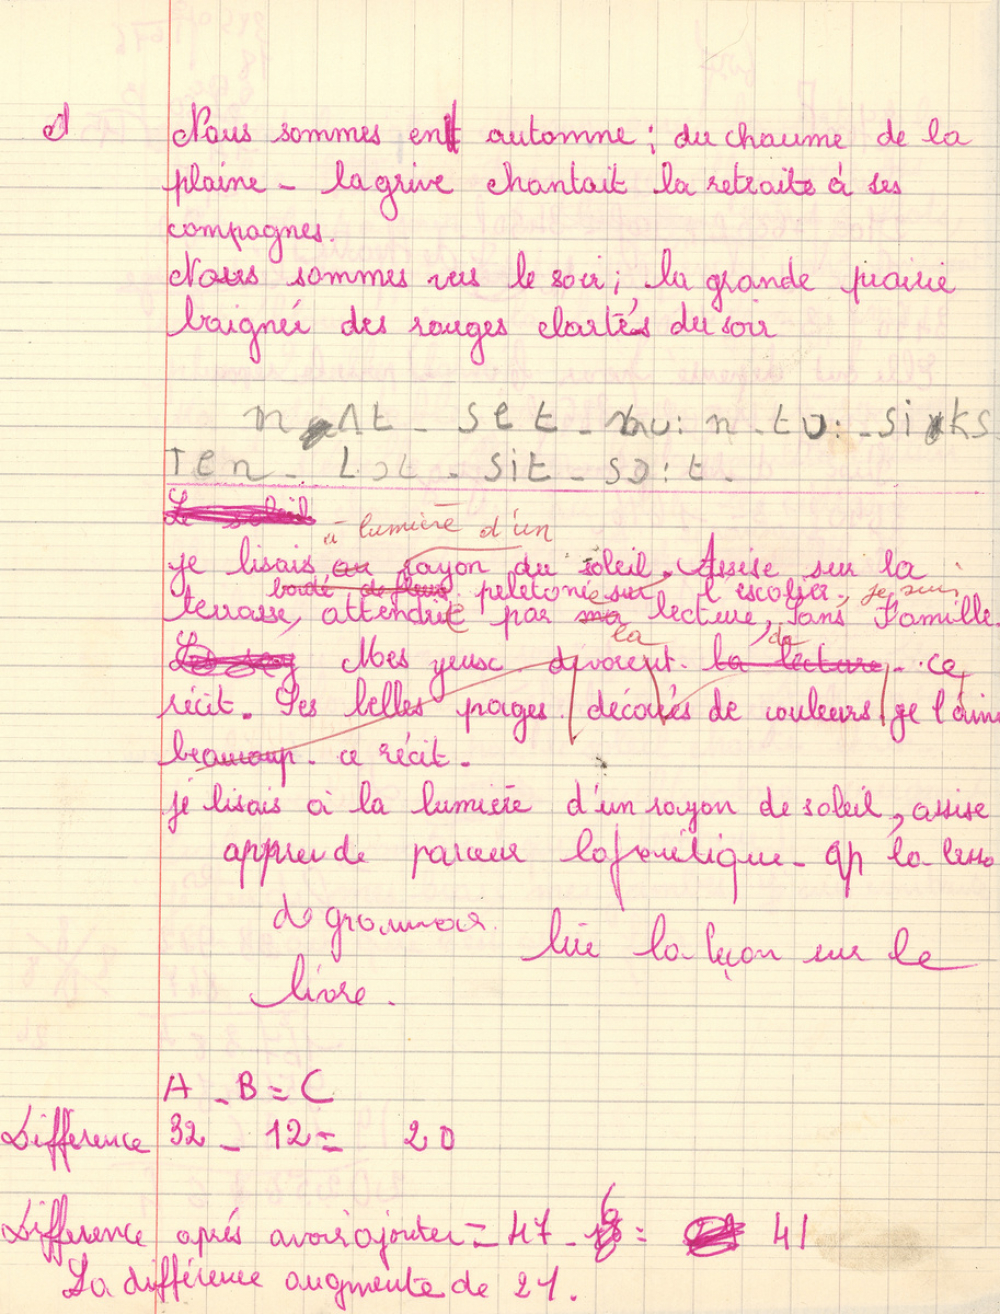 Nous sommes en automne ; du chaume de la
plaine - la grive chantait la retraite à ses
compagnes.
Nous sommes vers le soir ; la grande prairie
baignée des rouges clartés du soir
sɛt - nu: n - tu: - siks
Ten - Lɔt - sit - sɔ:t -
Le soleil
à lumière d'un
je lisais au rayon du soleil. Assise sur la
bordé de fleurs pelotonée sur l'escalier, je suis
terrasse, attendrie par ma lecture, sans Famille
la de
Mes yeux dévorent la lecture - ce
récit. Ses belles pages décorés de couleurs je l'aime
beaucoup - ce récit.
je lisais à la lumière d'un rayon de soleil, assise
apprende par cœur la - ap la leço
de grammair. lire la leçon sur le
livre.
A - B = C
Différence 32 - 12 = 20
Différence aprés avoir ajouter = 47 - 6 = 41
La différence augmente de 21.